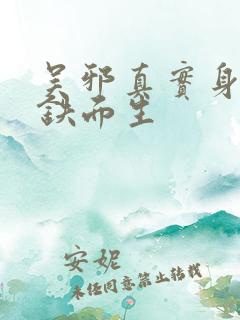 吴邪真實身
鋏而生
安妮
未经同意禁止转载